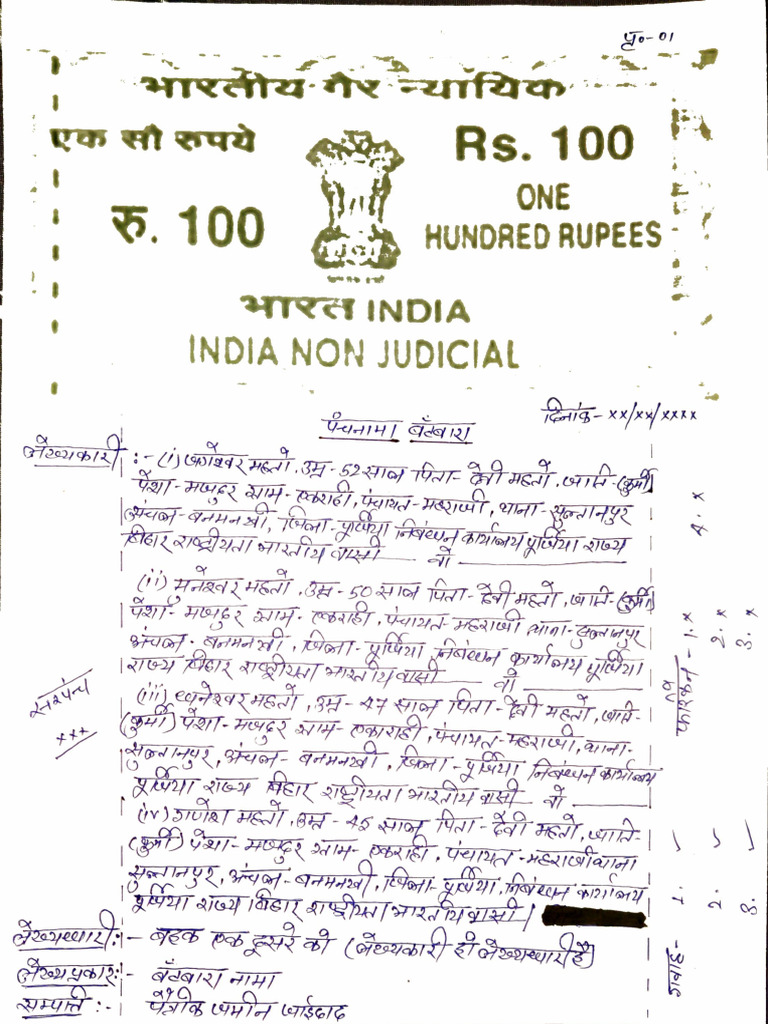 पृ०-01
भारतीय गैर न्यायिक
एक सौ रुपये
Rs. 100
रु. 100
ONE
HUNDRED RUPEES
भारत INDIA
INDIA NON JUDICIAL
दिनांक - xx/xx/xxxx
पंचनामा बँटबारा
लेख्यकारी :- (i) जगेश्वर महतो, उम्र - 52 साल पिता - देवी महतो, जाति - (कुर्मी)
पेशा - मजदुर ग्राम - एकराही, पंचायत - महराजी, थाना - सुल्तानपुर
अंचल - बनमनखी, जिला - पूर्णिया निबंधन कार्यालय पूर्णिया राज्य
बिहार राष्ट्रीयता भारतीय वासी वो
(ii) मुनेश्वर महतो, उम्र - 50 साल पिता - देवी महतो, जाति - (कुर्मी)
पेशा - मजदुर ग्राम - एकराही, पंचायत - महराजी थाना - सुल्तानपुर
अंचल - बनमनखी, जिला - पूर्णिया, निबंधन कार्यालय पूर्णिया
राज्य बिहार राष्ट्रीयता भारतीय वासी वो
(iii) ध्वनेश्वर महतो, उम्र - 47 साल पिता - देवी महतो, जाति -
(कुर्मी) पेशा - मजदुर ग्राम - एकाराही, पंचायत - महराजी, थाना -
सुल्तानपुर, अंचल - बनमनखी, जिला - पूर्णिया निबंधन कार्यालय
पूर्णिया राज्य बिहार राष्ट्रीयता भारतीय वासी वो
(iv) गणेश महतो, उम्र - 45 साल पिता - देवी महतो, जाति -
(कुर्मी) पेशा - मजदुर ग्राम - एकराही, पंचायत - महराजी थाना
सुल्तानपुर, अंचल - बनमनखी, जिला - पूर्णिया, निबंधन कार्यालय
पूर्णिया राज्य बिहार राष्ट्रीयता भारतीय वासी।
लेख्यधारी :- बहक एक दूसरे को (लेख्यकारी ही लेख्यधारी है)
लेख्यप्रकार :- बँटबारा नामा
सम्पत्ति :- पैत्रीक जमीन जाईदाद
सरपंच
xxx
फरिकन - 1. x
2. x
3. x
4. x
गवाह - 1. ✓
2. ✓
3. ✓